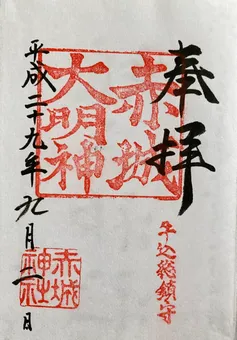 奉拝
赤城
大明神
牛込総鎮守
平成二十九年九月二日
赤城
神社